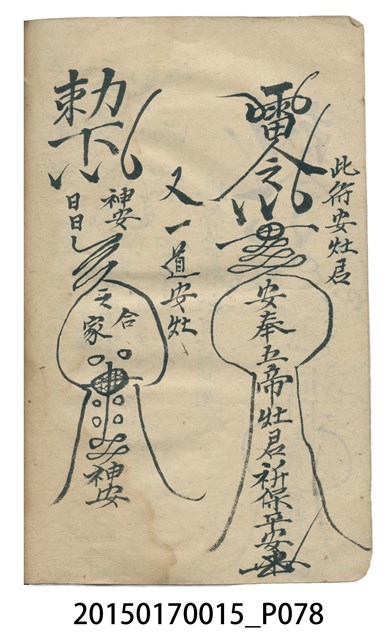 此符安灶君
雷令
安奉五帝灶君祈保平安
又一道安灶
勅下
神安
日日
合
之家
神安
20150170015_P078